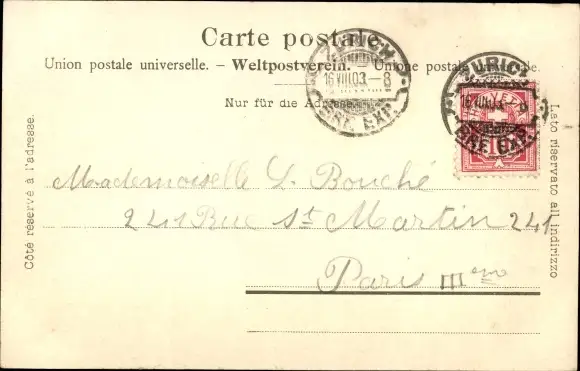 Carte postale.
Union postale universelle. – Weltpostverein. – Unione postale universelle.
Nur für die Adresse.
ZÜRICH
16.VIII.03.–8
BRF. EXP.
ZÜRICH
16.VIII.03.–8
BRF. EXP.
HELVETIA
10
Côté réservé à l'adresse.
Lato riservato all indirizzo
Mademoiselle L. Bouché
241 Rue St Martin 241
Paris IIIeme